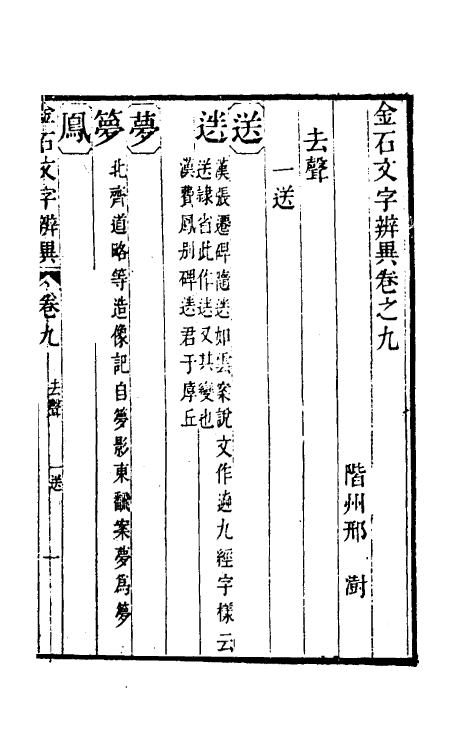 金石文字辨異卷之九
階州邢澍
去聲
一送
送
迭
漢張遷碑隨送如雲案說文作𨕙九經字樣云
送隷省此作迭又其變也
漢費鳳别碑送君于厚丘
夢
夣
北齊道略等造像記自夣影東飜案夢爲夣
鳳
金石文字辨異
卷九
去聲
一送
一